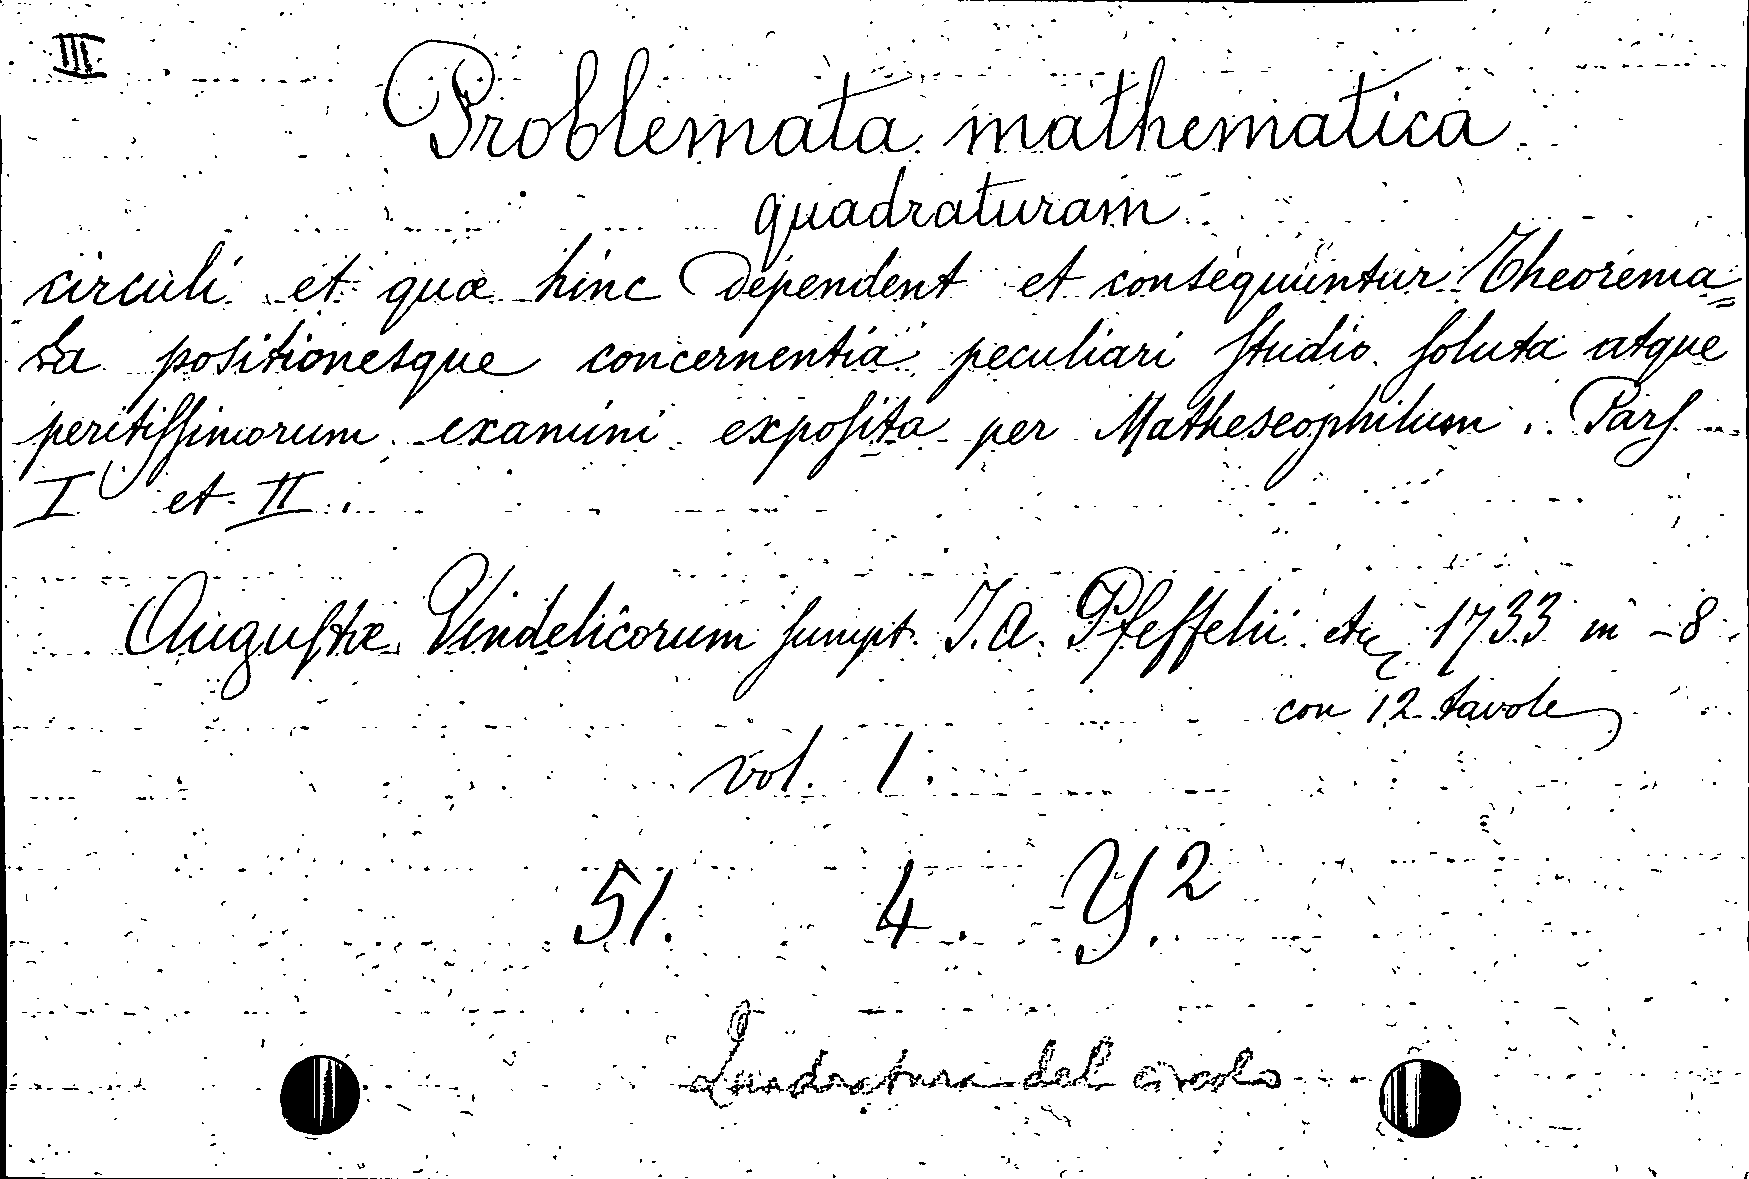 III
Problemata mathematica
quadraturam
circuli et quæ hinc dependent et consequuntur Theorema=
ta positionesque concernentia peculiari ſtudio ſoluta atque
peritiſſimorum examini expoſita per Matheseophilum. Parſ
I et II.
Auguſtæ Vindelicorum ſumpt. J. A. Pfeffelii etc 1733 in -8.
con 12 tavole
vol. 1.
51. 4. Y.2
Quadratura del circolo